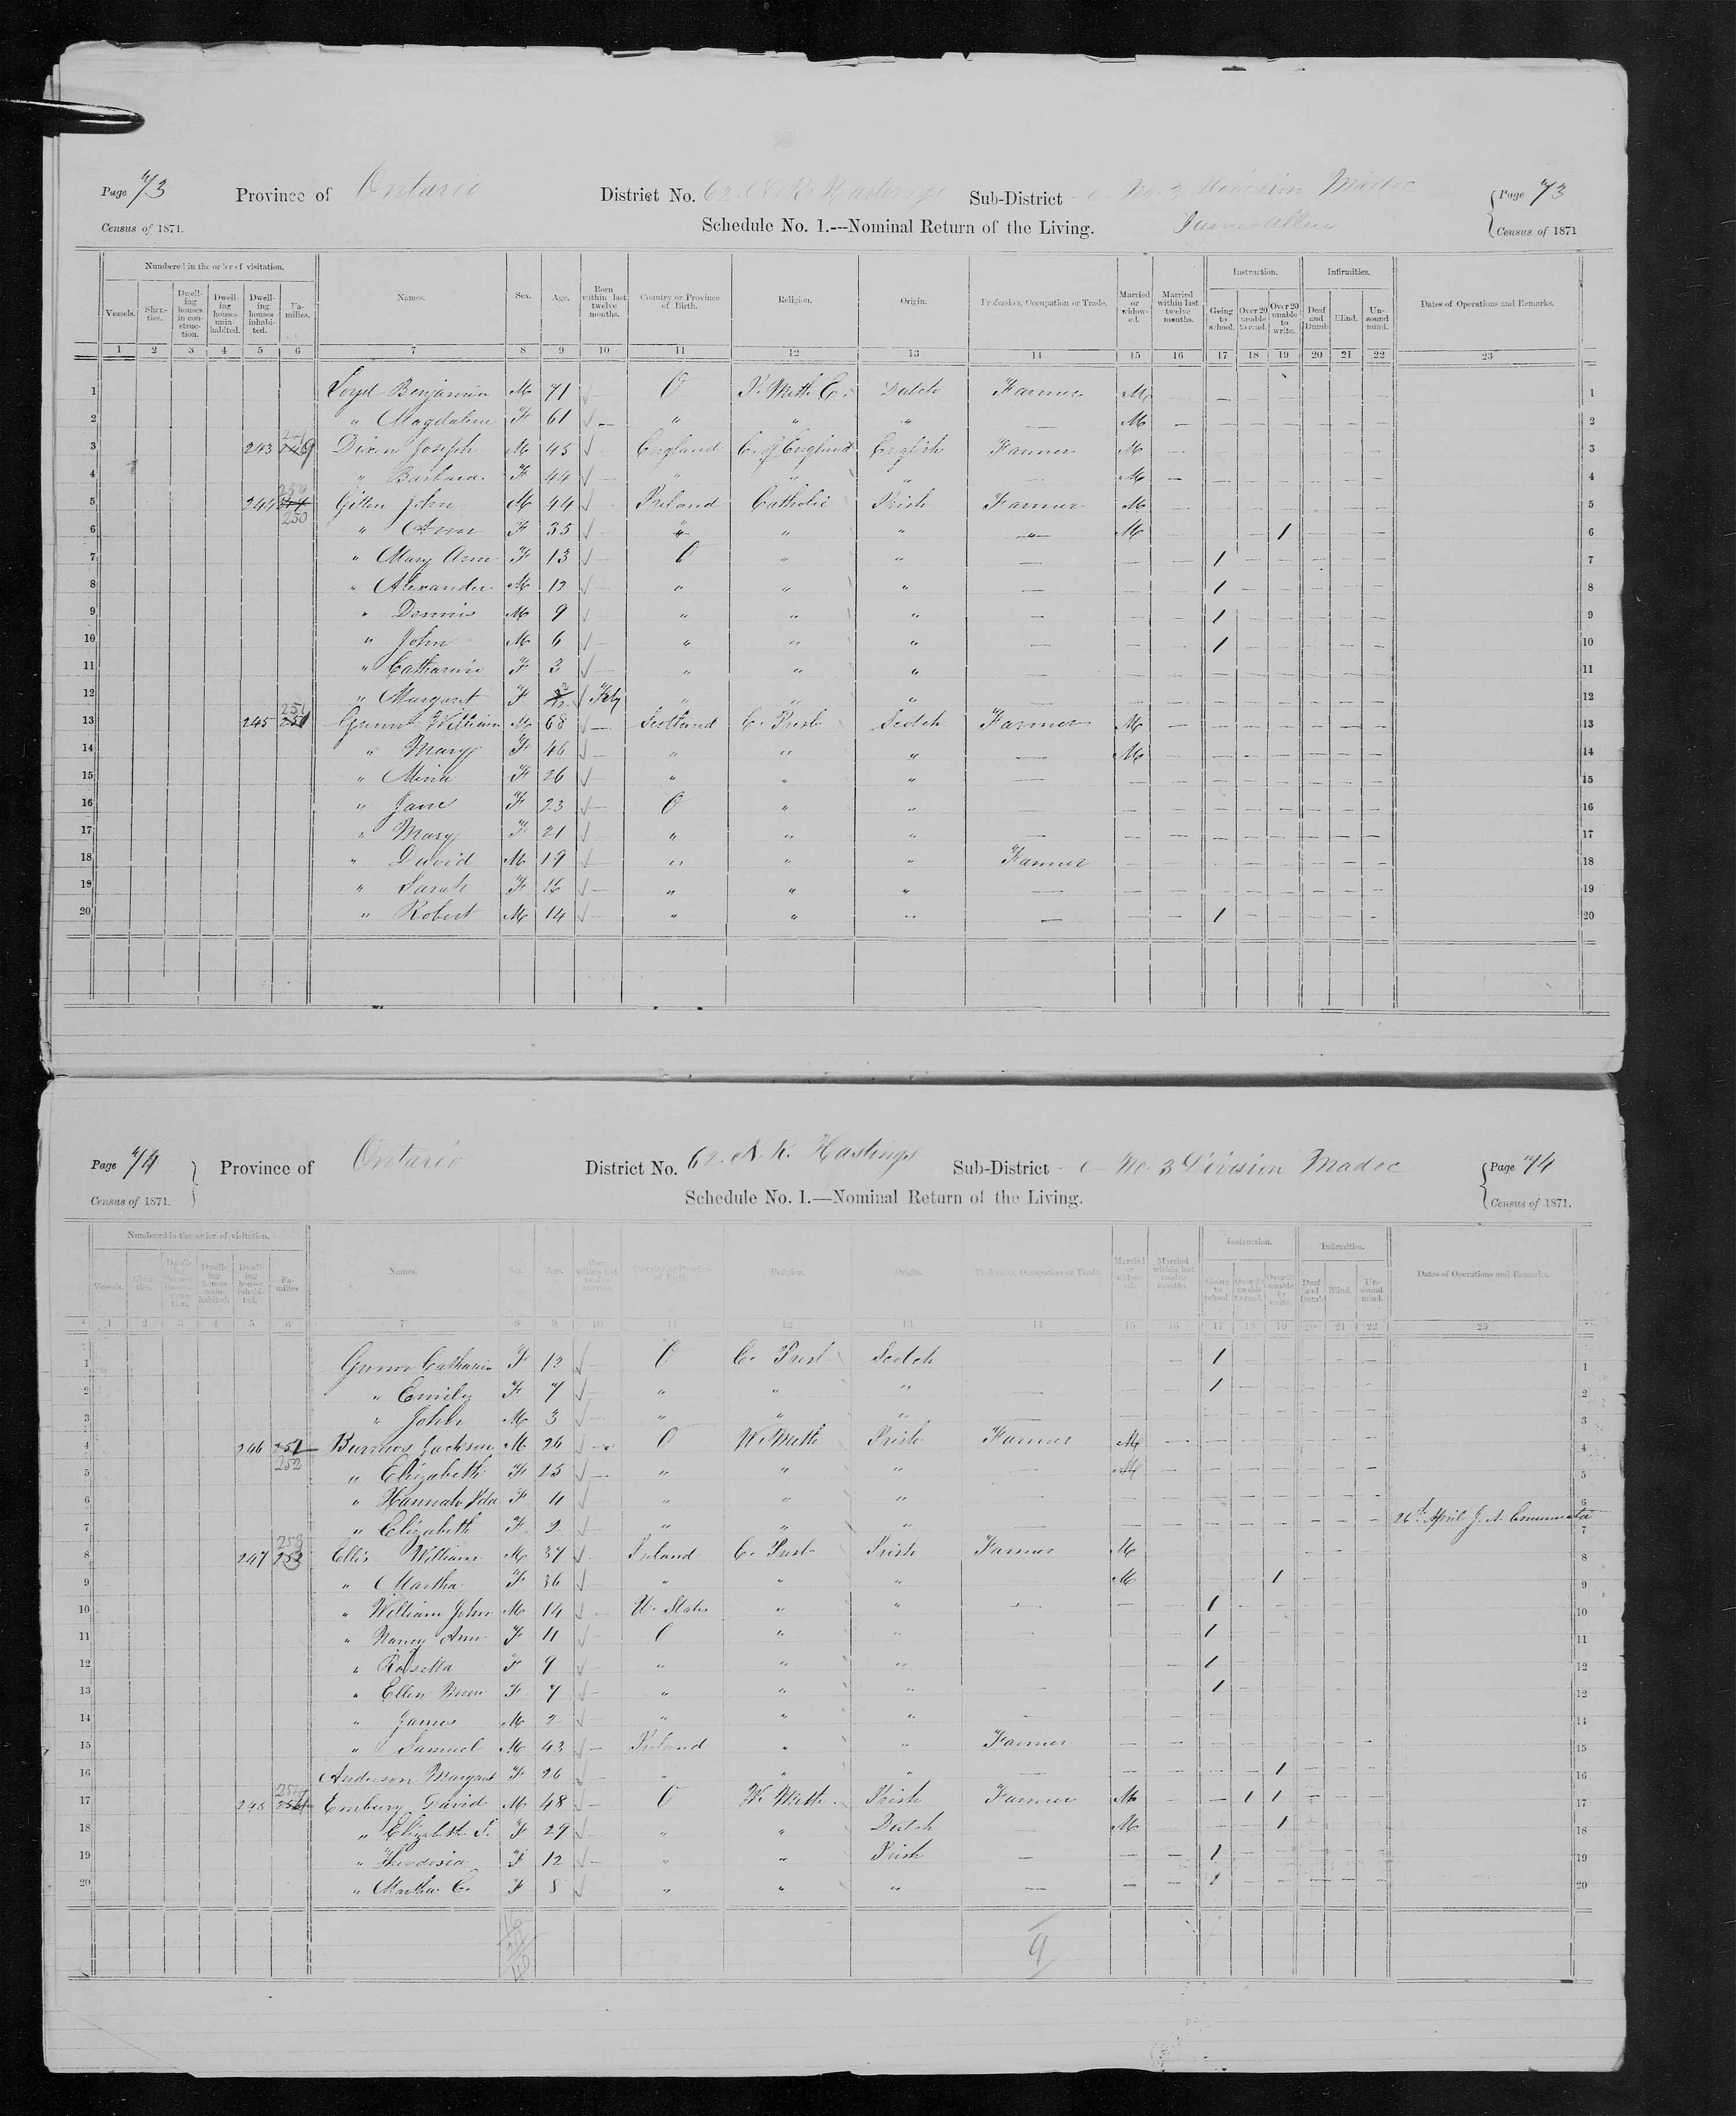 Page 73 Province of Ontario District No. 62 N. R. Hastings Sub-District - c - No. 3 Division Madoc Page 73
Census of 1871. Schedule No. 1.---Nominal Return of the Living. James Allen Census of 1871
Numbered in the order of visitation. Instruction. Infirmities.
Vessels. Shanties. Dwelling houses in construction. Dwelling houses uninhabited. Dwelling houses inhabited. Families. Names. Sex. Age. Born within last twelve months. Country or Province of Birth. Religion. Origin. Profession, Occupation or Trade. Married or widowed. Married within last twelve months. Going to school. Over 20 unable to read. Over 20 unable to write. Deaf and Dumb. Blind. Unsound mind. Dates of Operations and Remarks.
1 2 3 4 5 6 7 8 9 10 11 12 13 14 15 16 17 18 19 20 21 22 23
1 Loyd Benjamin M 71 O Dutch Farmer M 1
2 " Magdalene F 61 " " " M 2
3 243 249 Dixon Joseph M 45 England C. of England English Farmer M 3
4 " Barbara F 44 " " " M 4
5 244 250 Gillen John M 44 Ireland Catholic Irish Farmer M 5
6 " Ann F 35 " " " " M 1 6
7 " Mary Ann F 13 O " " 1 7
8 " Alexander M 12 " " " 1 8
9 " Dennis M 9 " " " 1 9
10 " John M 6 " " " 1 10
11 " Catharine F 3 " " " 11
12 " Margaret F 2/12 Feb " " " 12
13 245 251 William M 68 Scotland C. Presb Scotch Farmer M 13
14 " Mary F 46 " " " M 14
15 " Mina F 26 " " " 15
16 " Jane F 23 O " " 16
17 " Mary F 21 " " " 17
18 " David M 19 " " " Farmer 18
19 " Sarah F 16 " " " 19
20 " Robert M 14 " " " 1 20
Page 74 Province of Ontario District No. 62 N. R. Hastings Sub-District - c - No. 3 Division Madoc Page 74
Census of 1871. Schedule No. 1.—Nominal Return of the Living. Census of 1871.
Numbered in the order of visitation. Instruction. Infirmities.
Vessels. Shanties. Dwelling houses in construction. Dwelling houses uninhabited. Dwelling houses inhabited. Families Names. Sex. Age. Born within last twelve months. Country or Province of Birth. Religion. Origin. Profession, Occupation or Trade. Married or widowed. Married within last twelve months. Going to school. Over 20 unable to read. Over 20 unable to write. Deaf and Dumb. Blind. Unsound mind. Dates of Operations and Remarks.
1 2 3 4 5 6 7 8 9 10 11 12 13 14 15 16 17 18 19 20 21 22 23
1 Catharin F 12 O C. Presb Scotch 1 1
2 " Emily F 7 " " " 1 2
3 " John M 3 " " " 3
4 246 251 252 Jackson M 26 O W. Meth Irish Farmer M 4
5 " Elizabeth F 25 " " " M 5
6 " Hannah Ida F 4 " " " 6
7 " Elizabeth F 2 " " " 26th April J. A. Enumerator 7
8 247 253 Ellis William M 37 Ireland C. Presb Irish Farmer M 8
9 " Martha F 36 " " " M 1 9
10 " William John M 14 U. States " " 1 10
11 " Nancy Ann F 11 O " " 1 11
12 " Rosetta F 9 " " " 1 12
13 " Ellen F 7 " " " 1 13
14 " James M 2 " " " 14
15 " Samuel M 43 Ireland " " Farmer 15
16 Anderson Margaret F 26 " " " 1 16
17 248 254 Embury David M 48 O W. Meth. Irish Farmer M 1 1 17
18 " Elizabeth S. F 29 " " Dutch M 1 18
19 " Theodosia F 12 " " Irish 1 19
20 " Martha C. F 8 " " " 1 20
16
24
40
9